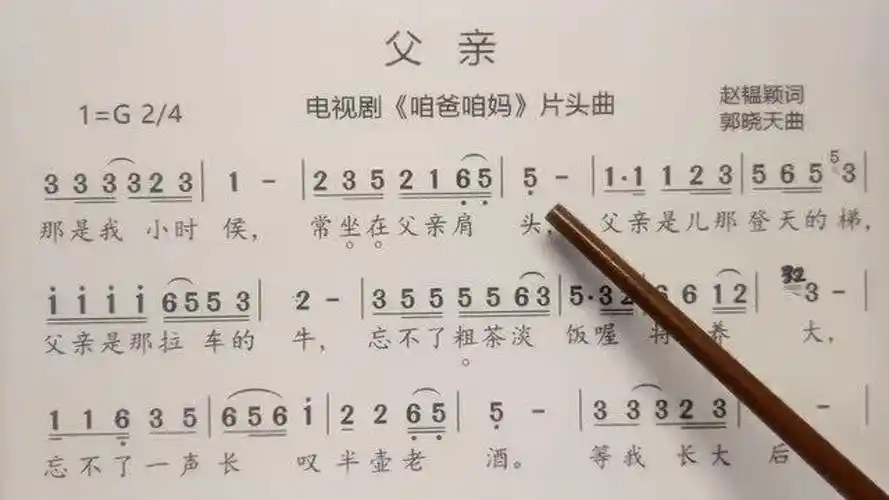 父 亲
1=G 2/4
电视剧《咱爸咱妈》片头曲
赵韫颖词
郭晓天曲
3 3 3 3 2 3 | 1 - | 2 3 5 2 1 6 5 | 5 - | 1·1 1 2 3 | 5 6 5 5 3 |
那是我 小时 侯, 常坐在父亲肩 头, 父亲是儿那登天的梯,
i i i i 6 5 5 3 | 2 - | 3 5 5 5 5 6 3 | 5·3 2 6 6 1 2 | 3 2 3 - |
父亲是那拉 车的 牛, 忘不了粗茶淡 饭喔 养 大,
1 1 6 3 5 | 6 5 6 i | 2 2 6 5 | 5 - | 3 3 3 2 3 | - |
忘不了一声长 叹半壶老 酒。 等我 长大 后